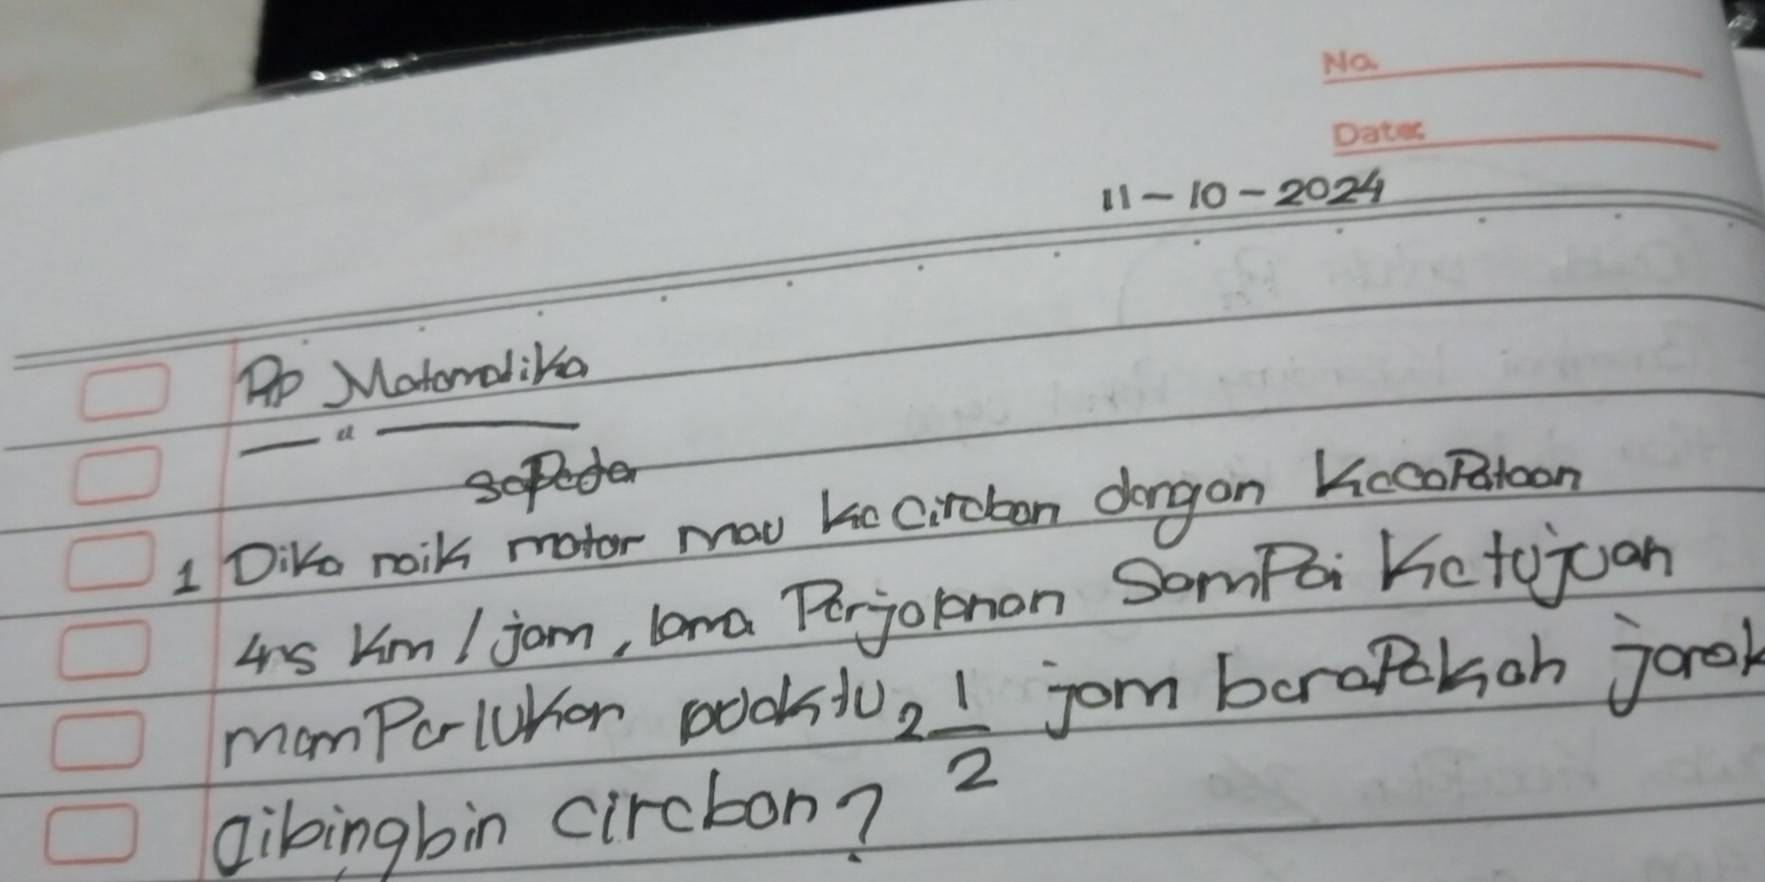 No.
Date:
11-10-2024
Pp Matematika
sepeda
1 Dika naik motor mau ke Cirebon dengan kecepataan
45 km/jam, lama Perjalanan Sampai ketujuan
memperlukan waktu 2 1/2 jam berapakah jarak
Cirebon?